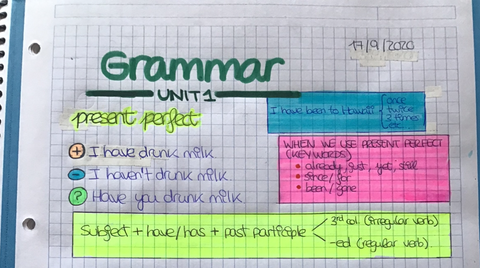 17/9/2020
Grammar
UNIT 1
present perfect
I have been to Hawaii
once
twice
3 times
etc
+ I have drunk milk
- I haven't drunk milk
? Have you drunk milk
WHEN WE USE PRESENT PERFECT
(KEY WORDS)
• already, just, yet, still
• since/for
• been/gone
Subject + have/has + past participle
3rd col (irregular verb)
-ed (regular verb)